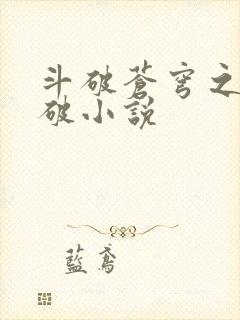 斗破蒼穹之
破小說
藍鳶